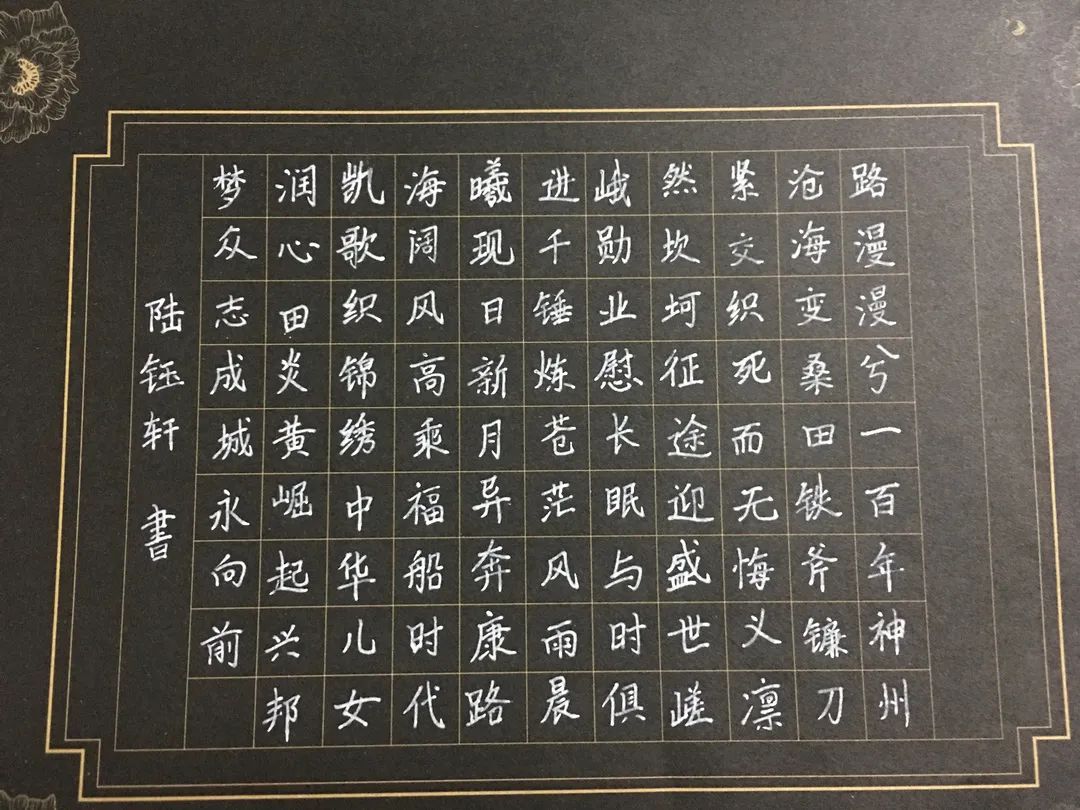 路漫漫兮一百年神州
沧海变桑田铁斧镰刀
紧交织死而无悔义凛
然坎坷征途迎盛世嵯
峨勋业慰长眠与时俱
进千锤炼苍茫风雨晨
曦现日新月异奔康路
海阔风高乘福船时代
凯歌织锦绣中华儿女
润心田炎黄崛起兴邦
梦众志成城永向前
陆钰轩 書